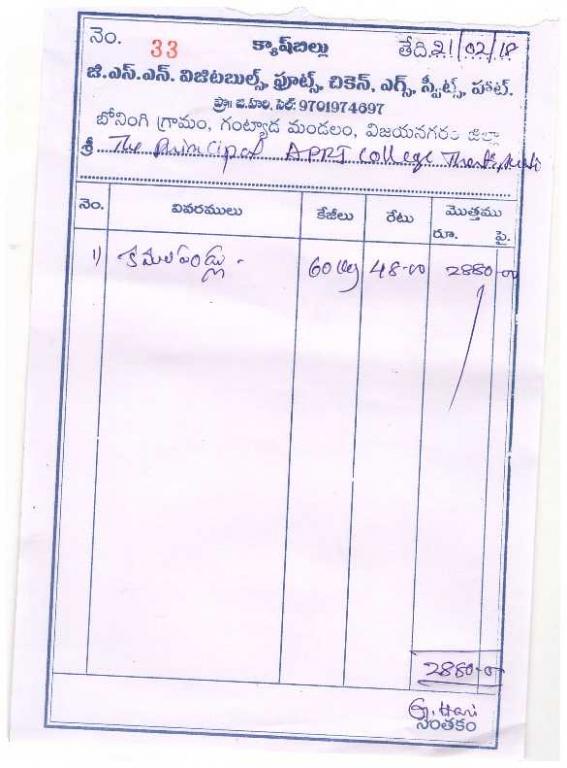 నెం. 33 క్యాష్‌బిల్లు తేది. 21/02/18
జి.ఎస్.ఎన్. విజిటబుల్స్, ఫ్రూట్స్, చికెన్, ఎగ్స్, స్వీట్స్, హాట్.
ప్రొ॥ జి.హరి, సెల్: 9701974697
బోనింగి గ్రామం, గంట్యాడ మండలం, విజయనగరం జిల్లా
శ్రీ The Principal APRJ College
నెం. వివరములు కేజీలు రేటు మొత్తము
రూ. పై.
1) కమలపండ్లు - 60 kg 48-00 2880-00
2880-00
G. Hari
సంతకం